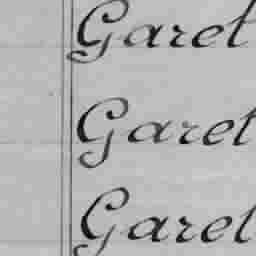 Garet
Garet
Garet